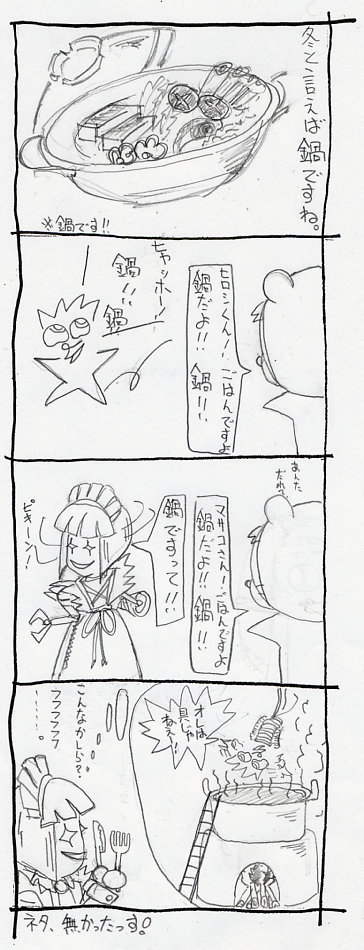 冬と言えば鍋ですね。
※鍋です!!
ヒロシくん!!ごはんですよ
鍋だよ!!鍋!!
ヒャッホー!!
鍋!!
鍋
あんた
だれ?
マサコさん!ごはんですよ
鍋だよ!!鍋!!
鍋ですって!!!
ピキーン!
オレは
具じゃ
ねぇ!!
こんなかしら?
フフフフフ
ネタ、無かったっす!